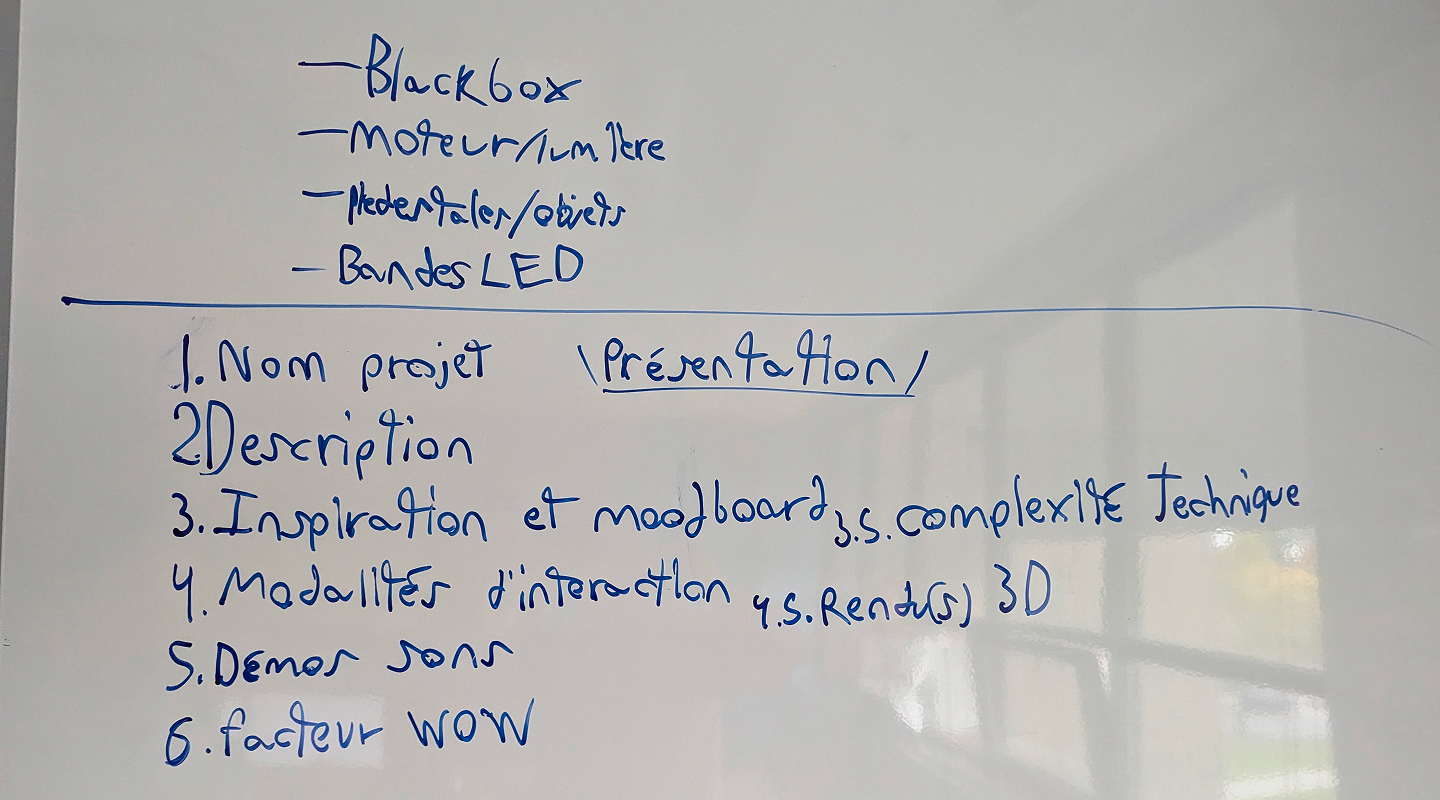 — Blackbox
— Moteur/lumière
— Piedestales/objets
— Bandes LED
1. Nom projet \Présentation/
2 Description
3. Inspiration et moodboard 3.5. Complexité Technique
4. Modalités d'interaction 4.5. Rendu(s) 3D
5. Démos sons
6. facteur WOW